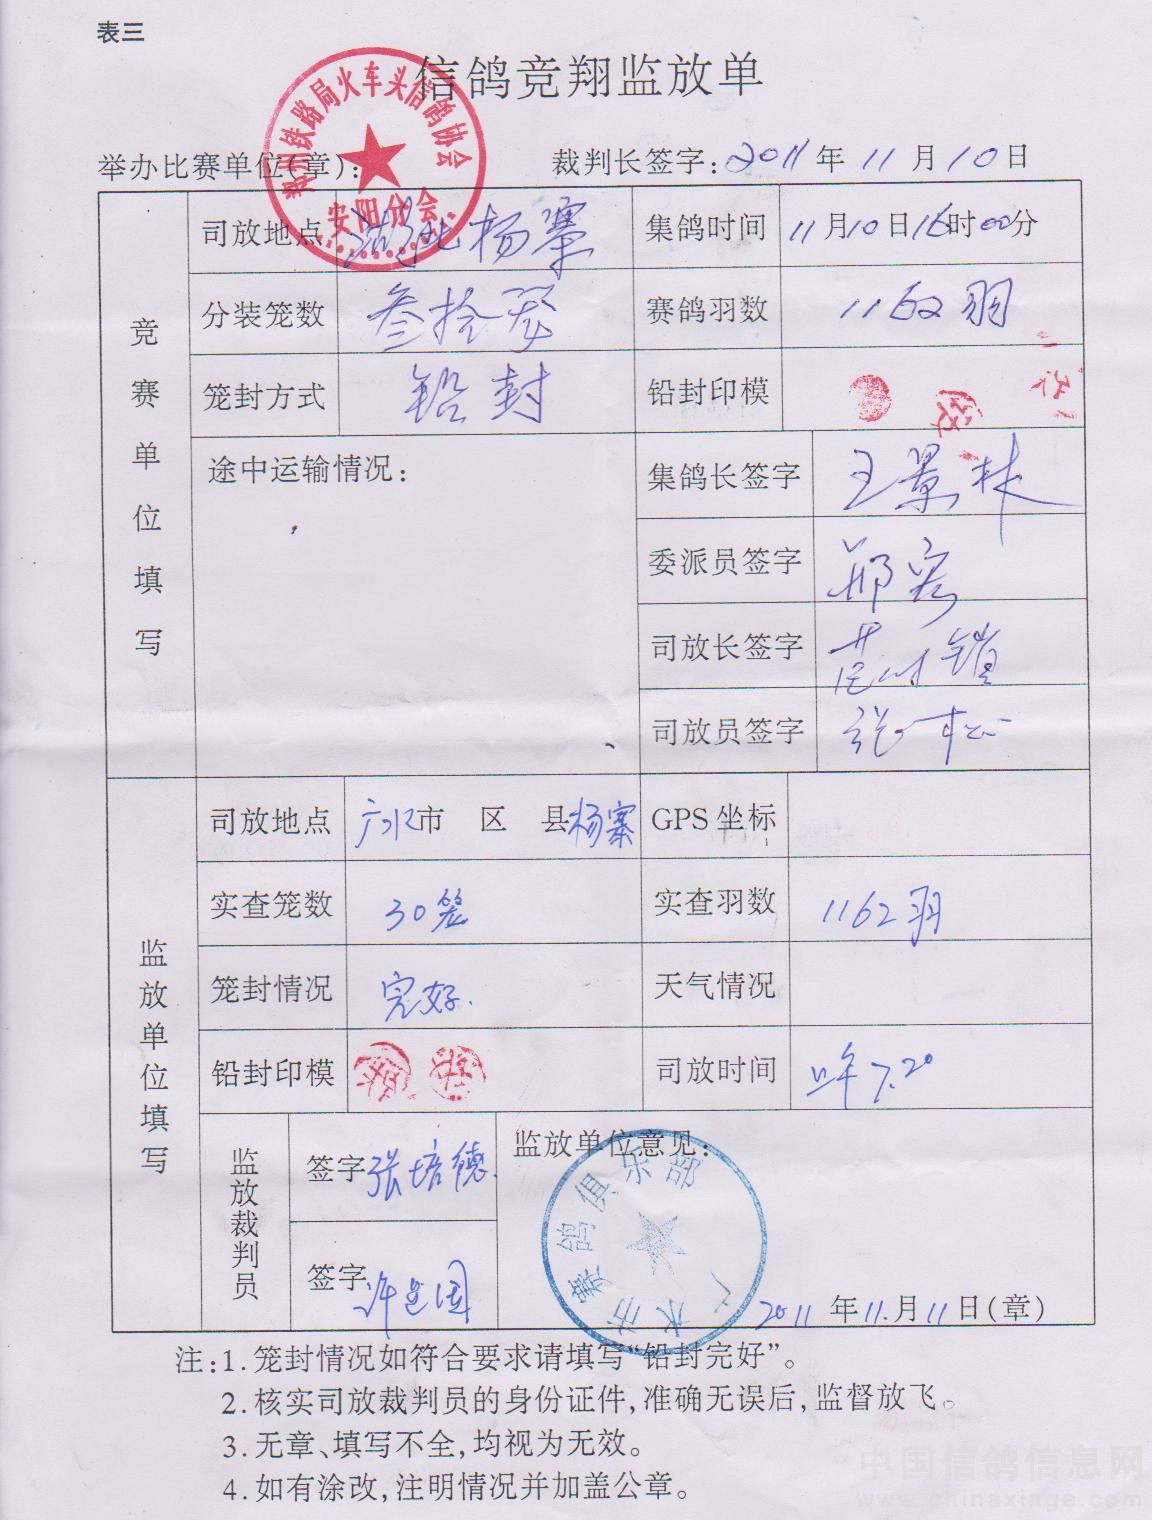 表三
信鸽竞翔监放单
郑州铁路局火车头信鸽协会
安阳分会
举办比赛单位(章): 裁判长签字: 2011年11月10日
竞赛单位填写
司放地点 湖北杨寨 集鸽时间 11月10日16时00分
分装笼数 叁拾 赛鸽羽数 1162羽
笼封方式 铅封 铅封印模
途中运输情况: 集鸽长签字 王景林
委派员签字
司放长签字
司放员签字
监放单位填写
司放地点 广水市 区 县杨寨 GPS坐标
实查笼数 30笼 实查羽数 1162羽
笼封情况 完好. 天气情况
铅封印模 司放时间 7.20
监放裁判员 签字 张培德 监放单位意见:
签字 许建国
广水市赛鸽俱乐部
2011年11月11日(章)
注:1.笼封情况如符合要求请填写“铅封完好”。
2.核实司放裁判员的身份证件,准确无误后,监督放飞。
3.无章、填写不全,均视为无效。
4.如有涂改,注明情况并加盖公章。
中国信鸽信息网
www.chinaxinge.com